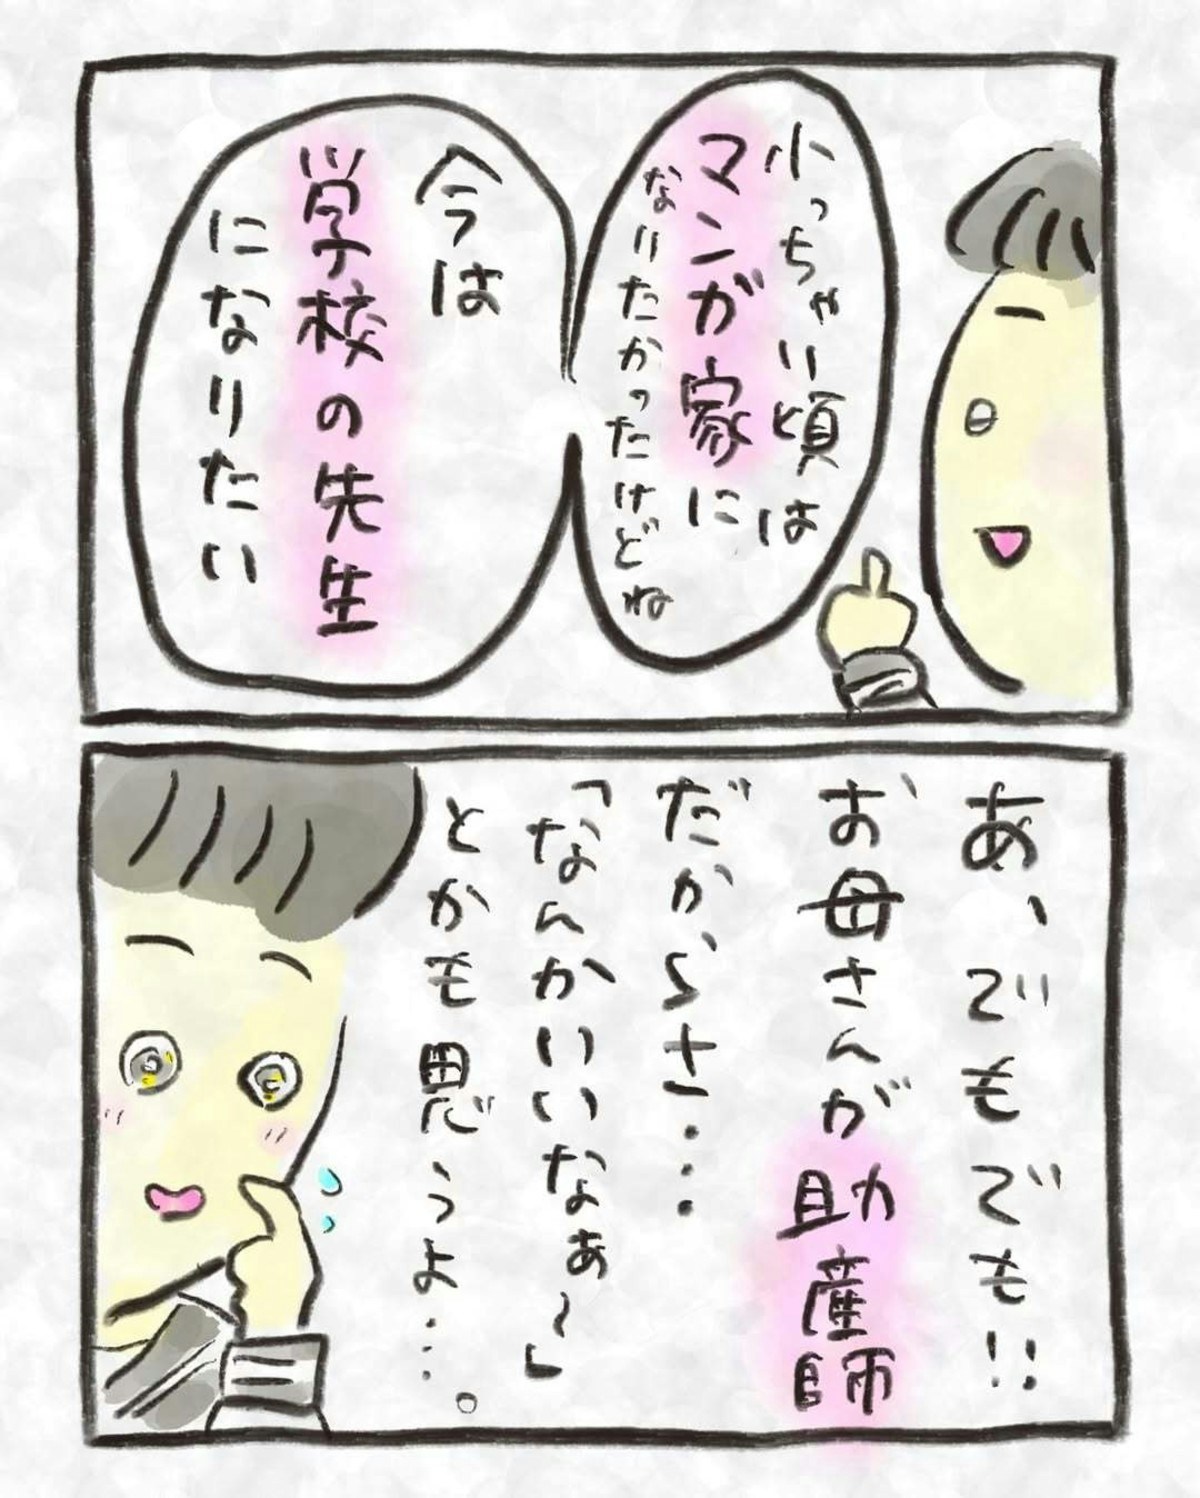 小っちゃい頃は
マンガ家に
なりたかったけどね
今は
学校の先生
になりたい
あ、でもでも!!
お母さんが助産師
だからさ…
「なんかいいなぁ~」
とかも思うよ…。